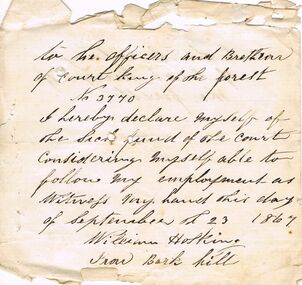 to the officers and Brethren
of court king of the forest
No 3770
I hereby declare myself of
the Sick fund of the court
Considering myself able to
follow my employment as
Witness my hand this day
of September th 23 1867
William Hoskin
Iron Bark hill